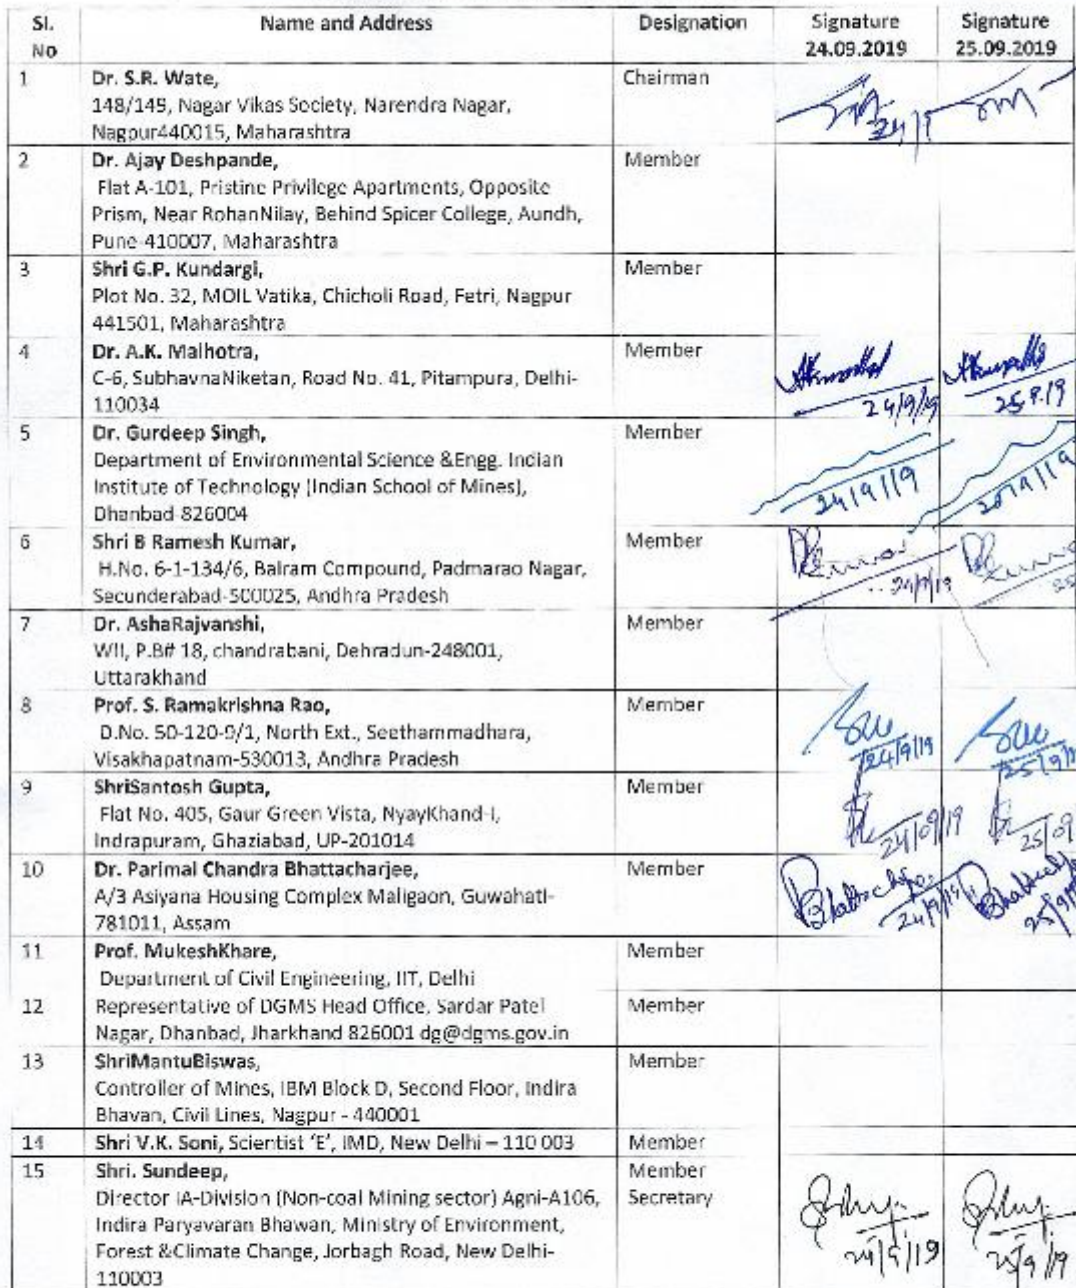 Sl. No Name and Address Designation Signature 24.09.2019 Signature 25.09.2019
1 Dr. S.R. Wate, Chairman
148/149, Nagar Vikas Society, Narendra Nagar,
Nagpur440015, Maharashtra
2 Dr. Ajay Deshpande, Member
Flat A-101, Pristine Privilege Apartments, Opposite
Prism, Near RohanNilay, Behind Spicer College, Aundh,
Pune-410007, Maharashtra
3 Shri G.P. Kundargi, Member
Plot No. 32, MOIL Vatika, Chicholi Road, Fetri, Nagpur
441501, Maharashtra
4 Dr. A.K. Malhotra, Member
C-6, SubhavnaNiketan, Road No. 41, Pitampura, Delhi-
110034
24/9/19 25.9.19
5 Dr. Gurdeep Singh, Member
Department of Environmental Science &Engg. Indian
Institute of Technology (Indian School of Mines),
Dhanbad-826004
24/9/19
6 Shri B Ramesh Kumar, Member
H.No. 6-1-134/6, Balram Compound, Padmarao Nagar,
Secunderabad-500025, Andhra Pradesh
24/9/19
7 Dr. AshaRajvanshi, Member
WII, P.B# 18, chandrabani, Dehradun-248001,
Uttarakhand
8 Prof. S. Ramakrishna Rao, Member
D.No. 50-120-9/1, North Ext., Seethammadhara,
Visakhapatnam-530013, Andhra Pradesh
24/9/19 25/9/19
9 ShriSantosh Gupta, Member
Flat No. 405, Gaur Green Vista, NyayKhand-I,
Indrapuram, Ghaziabad, UP-201014
24/09/19 25/09
10 Dr. Parimal Chandra Bhattacharjee, Member
A/3 Asiyana Housing Complex Maligaon, Guwahati-
781011, Assam
24/9/19
11 Prof. MukeshKhare, Member
Department of Civil Engineering, IIT, Delhi
12 Representative of DGMS Head Office, Sardar Patel Member
Nagar, Dhanbad, Jharkhand 826001 dg@dgms.gov.in
13 ShriMantuBiswas, Member
Controller of Mines, IBM Block D, Second Floor, Indira
Bhavan, Civil Lines, Nagpur - 440001
14 Shri V.K. Soni, Scientist 'E', IMD, New Delhi – 110 003 Member
15 Shri. Sundeep, Member Secretary
Director IA-Division (Non-coal Mining sector) Agni-A106,
Indira Paryavaran Bhawan, Ministry of Environment,
Forest &Climate Change, Jorbagh Road, New Delhi-
110003
24/9/19 25/9/19